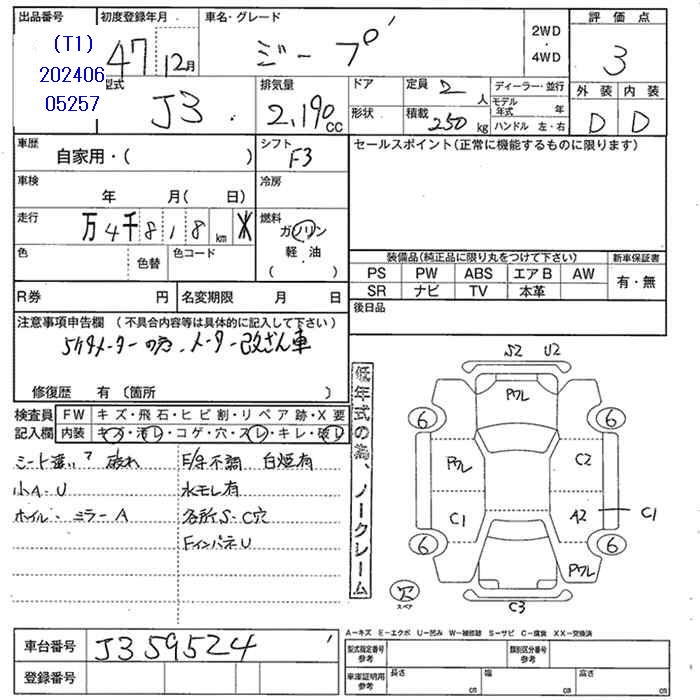 出品番号 初度登録年月 車名・グレード 評価点
(T1) 47 12月 ジープ 2WD
・
4WD 3
202406
05257
型式 排気量 ドア 定員 2 人 ディーラー・並行 外装 内装
J3 2,190 CC 形状 積載 250 kg モデル年式 年
ハンドル 左・右 D D
車歴 シフト セールスポイント(正常に機能するものに限ります)
自家用・( ) F3
車検 冷房
年 月( 日)
走行 燃料
万 4千 8 1 8 km ガソリン
色 色替 色コード 軽・油
( )
装備品(純正品に限り丸をつけて下さい) 新車保証書
PS PW ABS エアB AW 有・無
SR ナビ TV 本革
R券 円 名変期限 月 日 後日品
注意事項申告欄 (不具合内容等は具体的に記入して下さい)
5ケタメーターの為、メーター改ざん車
修復歴 有 〔箇所 〕
検査員 FW キズ・飛石・ヒビ割・リペア跡・X要
記入欄 内装 キズ・汚レ・コゲ・穴・スレ・キレ・破レ
破れ E/g不調 白煙有
小A・U 水モレ有
ホイル・ミラーA 各所S・C穴
FインパネU
低年式の為、ノークレーム
S2 U2
Pワレ
6 6
Pワレ C2
C1 A2 C1
6 6
Pワレ
穴
スペア
C3
車台番号 J359524
登録番号
A−キズ E−エクボ U−凹み W−補修跡 S−サビ C−腐食 XX−交換済
型式指定番号
参考 類別区分番号
参考
車庫証明用
参考 長さ cm 幅 cm 高さ cm